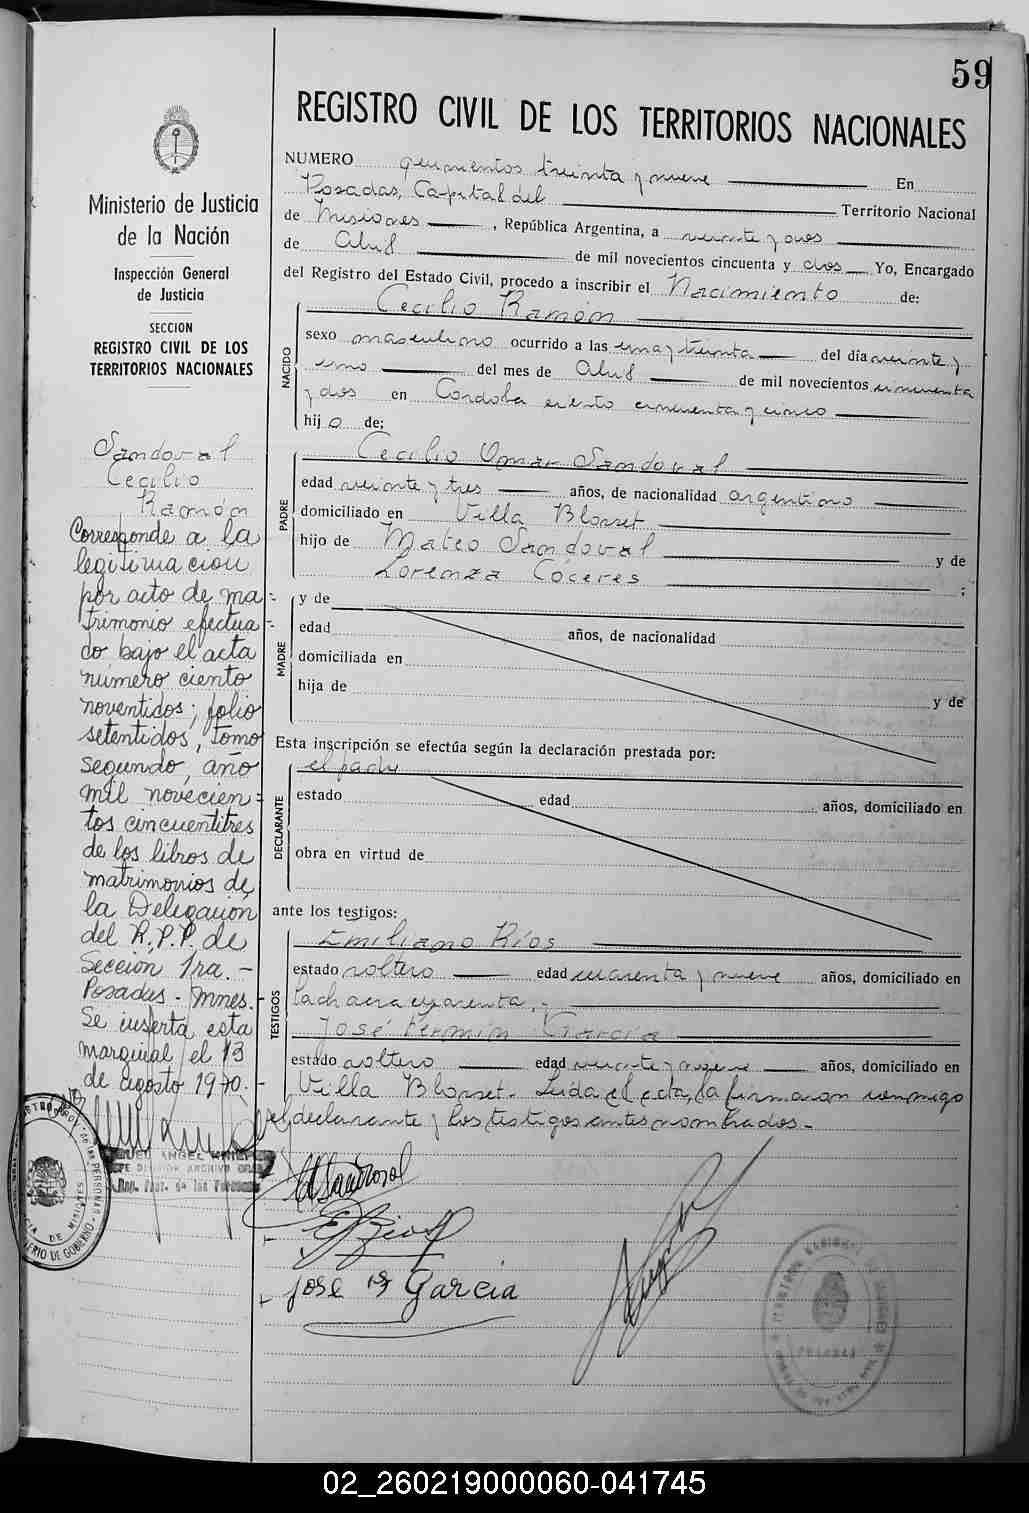 59
REGISTRO CIVIL DE LOS TERRITORIOS NACIONALES
Ministerio de Justicia
de la Nación
Inspección General
de Justicia
SECCION
REGISTRO CIVIL DE LOS
TERRITORIOS NACIONALES
Sandoval
Cecilio
Ramón
Corresponde a la
legitimacion
por acto de ma-
trimonio efectua-
do bajo el acta
número ciento
noventidos; folio
setentidos, tomo
segundo, año
mil novecien-
tos cincuentitres
de los libros de
matrimonios de
la Delegación
del R.P.P. de
Sección 1ra. -
Posadas - Mnes. -
Se inserta esta
marginal el 13
de agosto 1970. -
NUMERO quinientos treinta y nueve En
Posadas, Capital del Territorio Nacional
de Misiones, República Argentina, a veinte y dos
de Abril de mil novecientos cincuenta y dos Yo, Encargado
del Registro del Estado Civil, procedo a inscribir el Nacimiento de:
NACIDO
Cecilio Ramón
sexo masculino ocurrido a las una y treinta del día veinte y
uno del mes de Abril de mil novecientos cincuenta
y dos en Córdoba ciento cincuenta y cinco
hijo de:
PADRE
Cecilio Omar Sandoval
edad veinte y tres años, de nacionalidad argentino
domiciliado en Villa Blosset
hijo de Mateo Sandoval y de
Lorenza Cáceres ;
MADRE
y de
edad años, de nacionalidad
domiciliada en
hija de y de
Esta inscripción se efectúa según la declaración prestada por:
DECLARANTE
el padre
estado edad años, domiciliado en
obra en virtud de
ante los testigos:
TESTIGOS
Emiliano Ríos
estado soltero edad cuarenta y nueve años, domiciliado en
Chacra cuarenta, y
José Fermín García
estado soltero edad veinte y nueve años, domiciliado en
Villa Blosset. Leida el acta, la firmaron conmigo
el declarante y los testigos antes nombrados. -
C Sandoval
E Rios
José F García
02_260219000060-041745